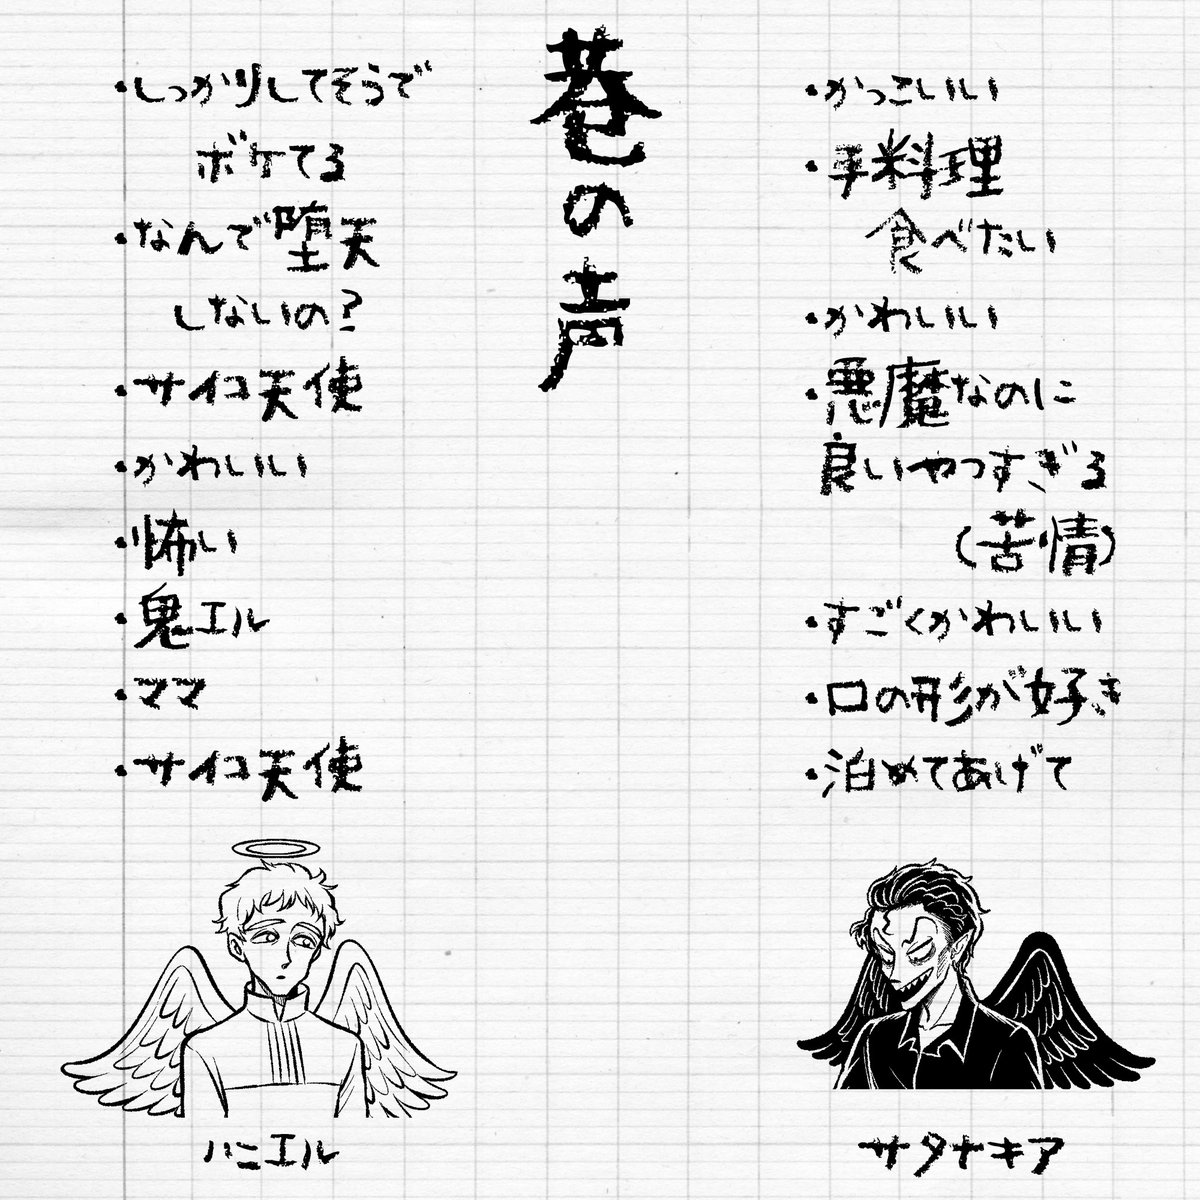 巷の声
・しっかりしてそうで
ボケてる
・なんで堕天
しないの?
・サイコ天使
・かわいい
・怖い
・鬼エル
・ママ
・サイコ天使
ハニエル
・かっこいい
・手料理
食べたい
・かわいい
・悪魔なのに
良いやつすぎる
(苦情)
・すごくかわいい
・口の形が好き
・泊めてあげて
サタナキア